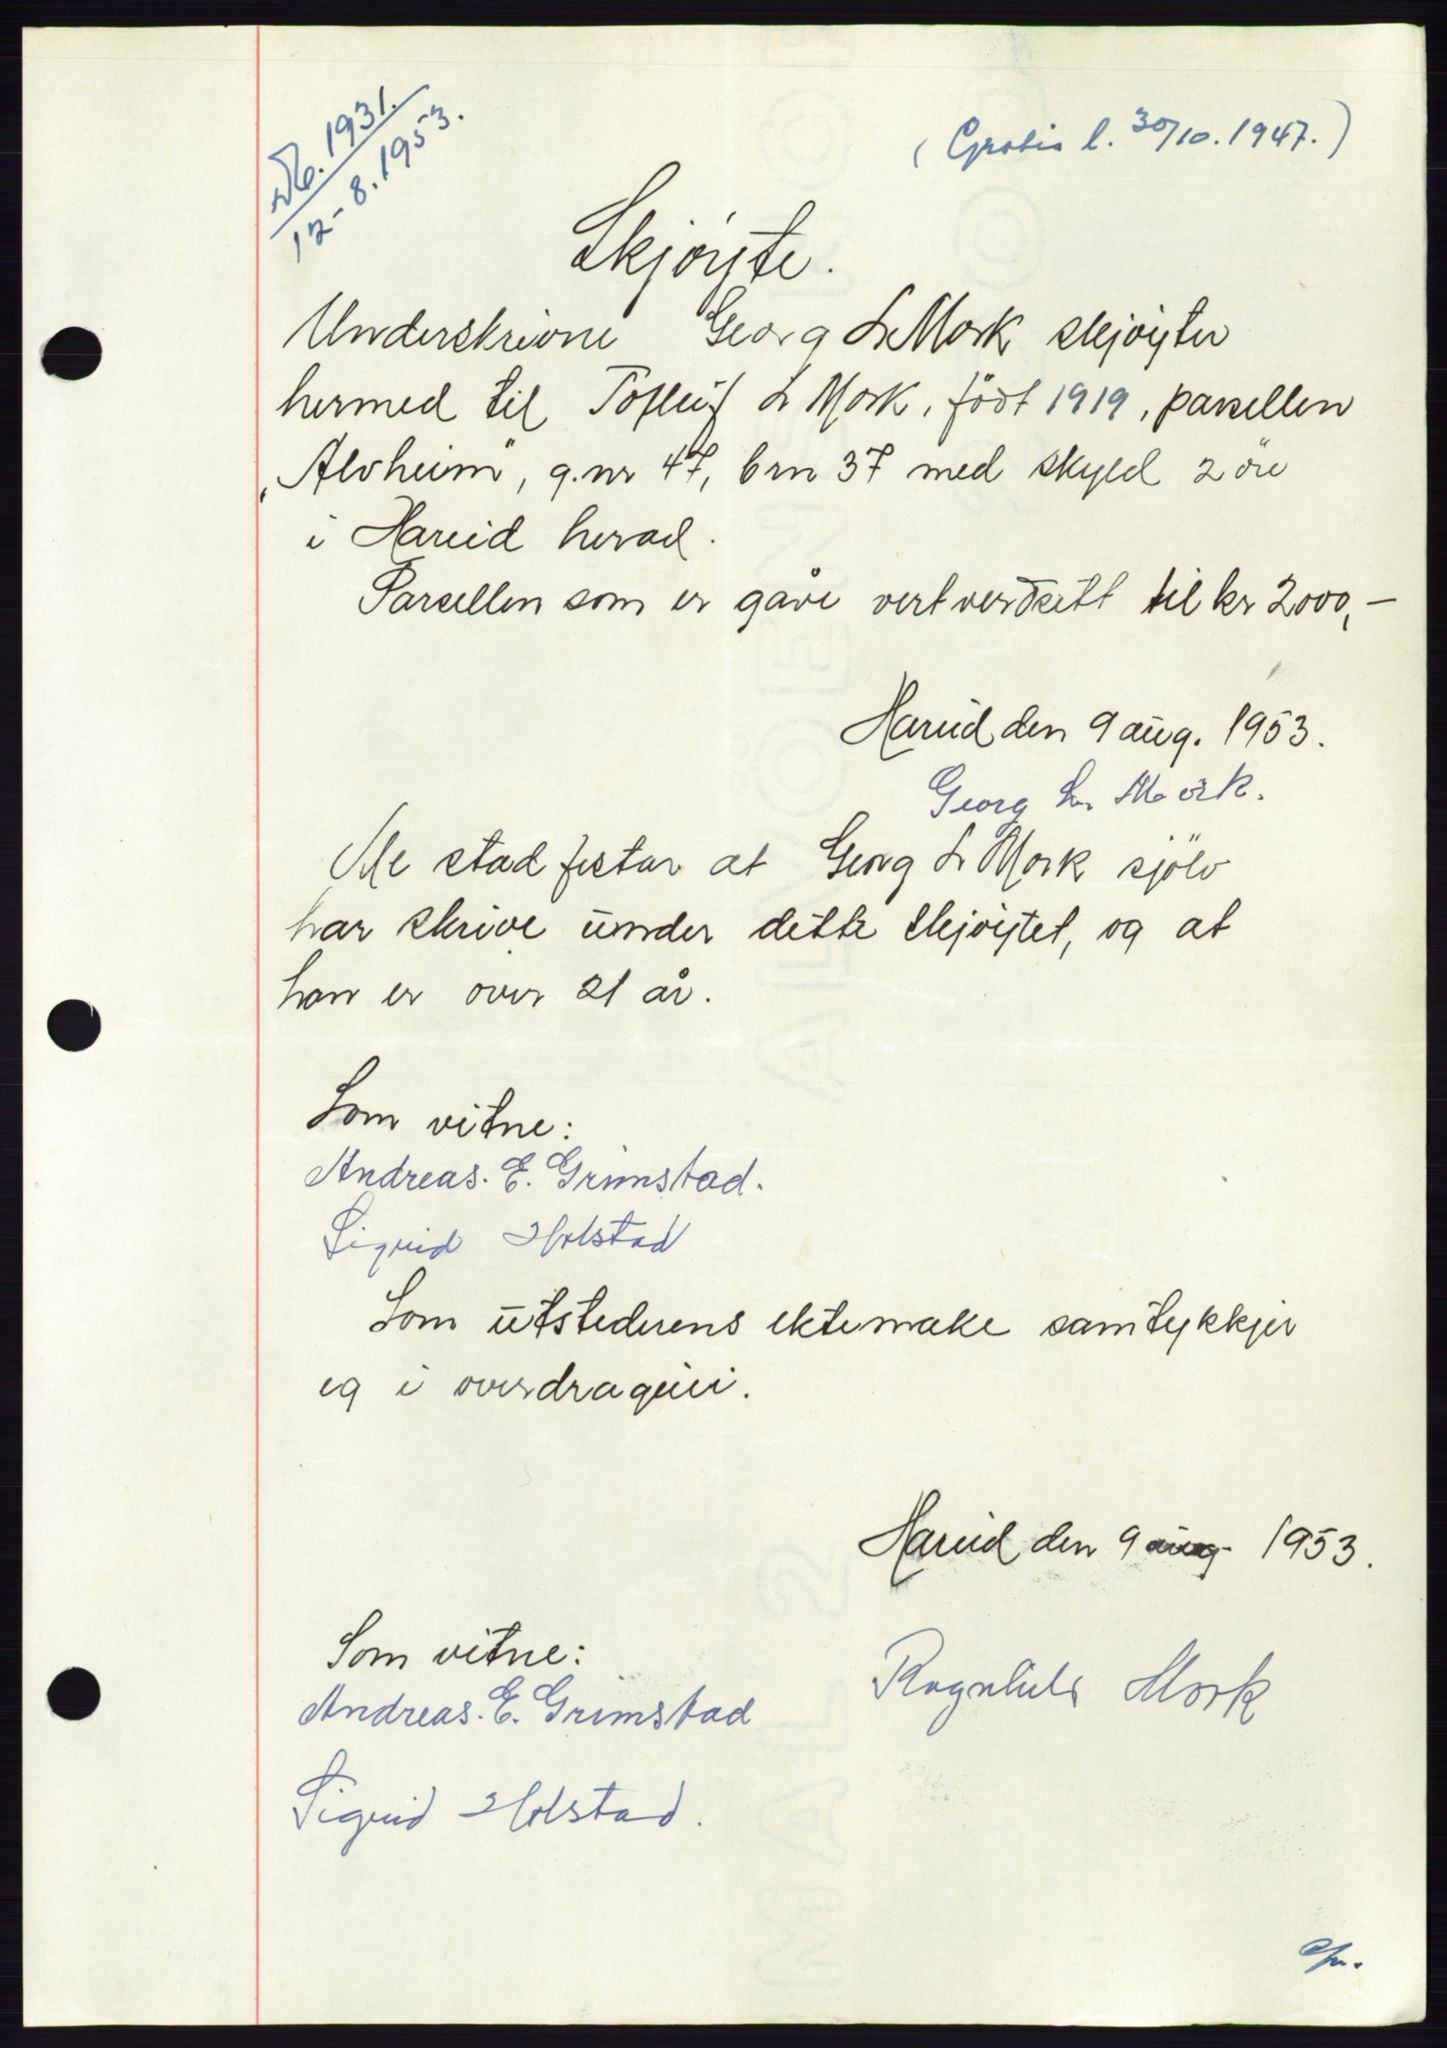 No. 1931.
12-8.1953.
(Gratis l. 30/10. 1947.)
Skjöyte.
Underskrivne Georg L Mork skjöyter
hermed til Tofleif L Mork, födt 1919, parsellen
„Alvheim", g.nr 47, brn 37 med skyld 2 öre
i Hareid herad.
Parsellen som er gåve vert verdsett til kr 2000,-
Hareid den 9 aug. 1953.
Georg L. Mork.
Me stadfestar at Georg L Mork sjölv
har skrive under dette skjöytet, og at
han er over 21 år.
Som vitne:
Andreas. E. Grimstad.
Sigrid Holstad
Som utstederens ektemake samtykkjer
eg i overdragini.
Hareid den 9 aug 1953.
Som vitne:
Ragnhild Mork
Andreas. E. Grimstad
Sigrid Holstad.